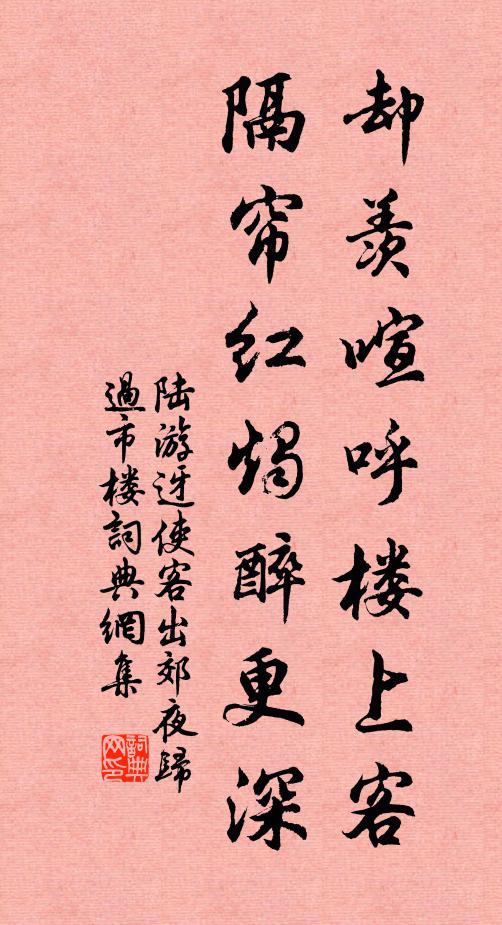 却羡喧呼楼上客
隔帘红烛醉更深
陆游迓使客出郊夜歸
過市楼詞典網集
詞典
网印